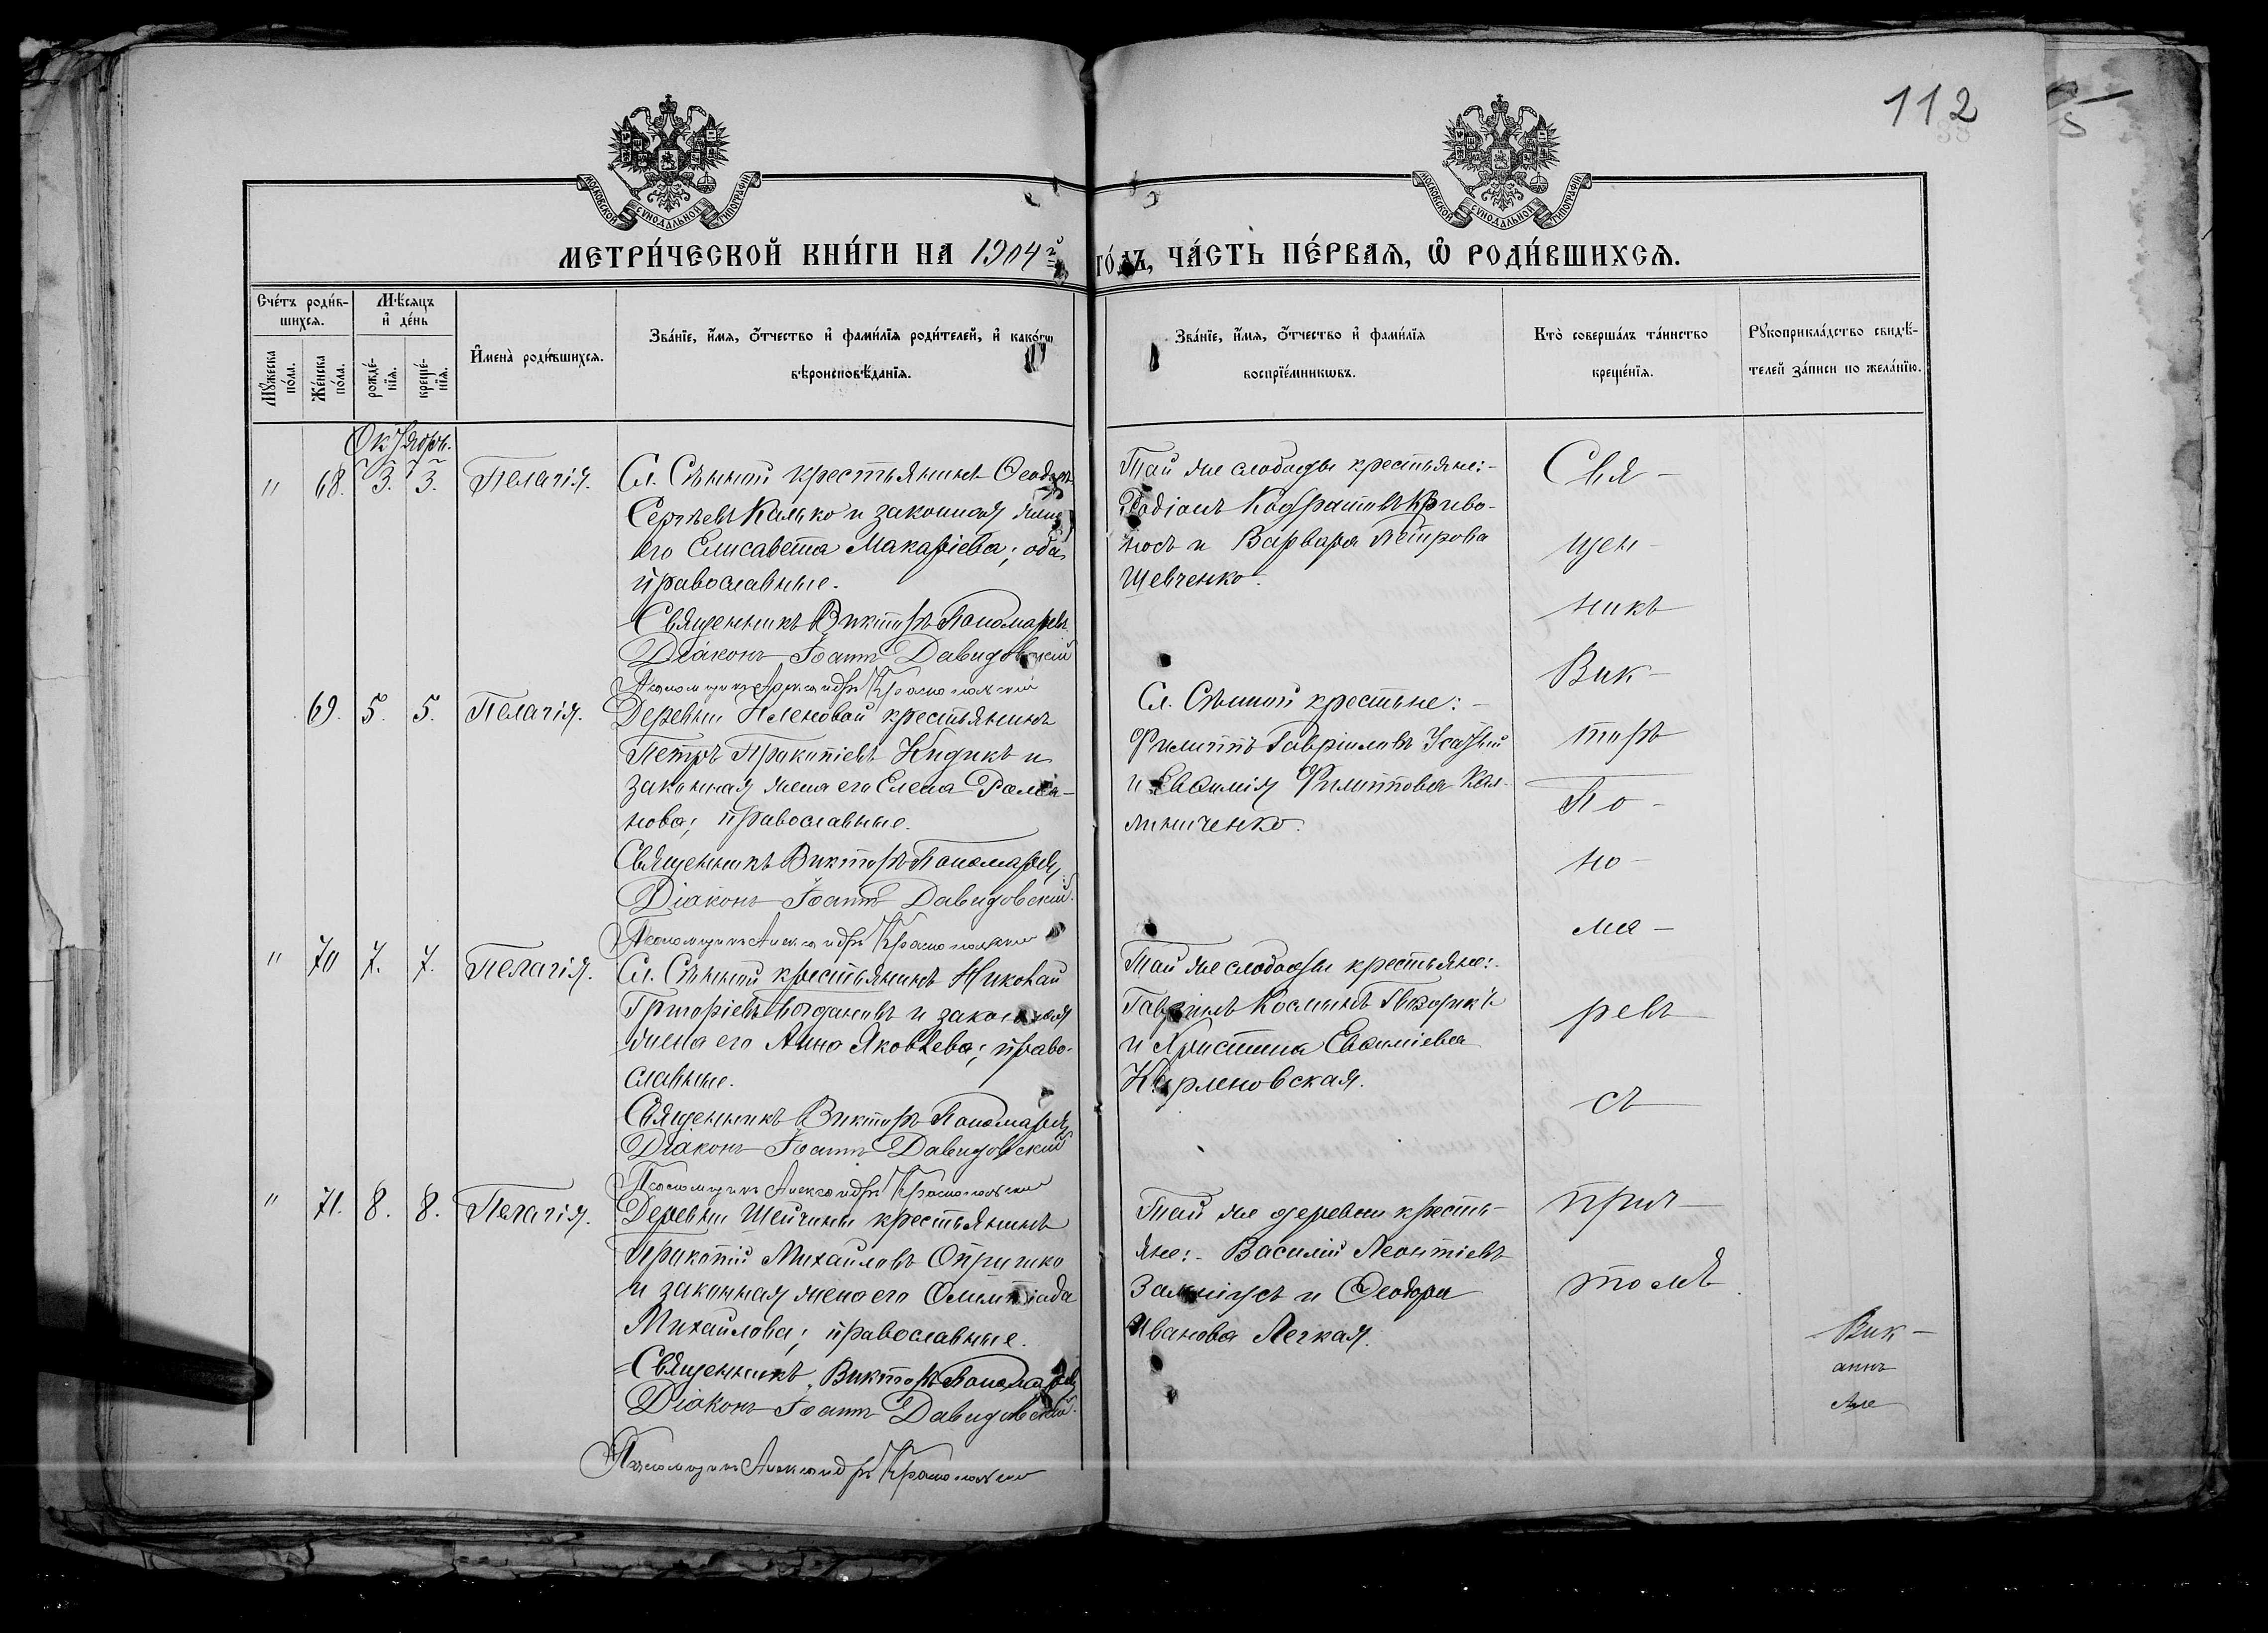 112
МОСКОВСКОЙ СУНОДАЛЬНОЙ ТИПОГРАФІИ
МОСКОВСКОЙ СУНОДАЛЬНОЙ ТИПОГРАФІИ
МЕТРИ́ЧЕСКОЙ КНИ́ГИ НА 1904й ГО́ДЪ, ЧА́СТЬ ПЕ́РВАѦ, Ѡ РОДИ́ВШИХСѦ.
Сче́тъ роди́в-
шихсѧ.
Мꙋ́жеска по́ла.
Же́нска по́ла.
Мѣ́сѧцъ
и҆ де́нь
рожде́-
нїѧ.
креще́-
нїѧ.
И҆мена̀ роди́вшихсѧ.
Зва́нїе, и҆́мѧ, ѻ҆́тчество и҆ фами́лїѧ роди́телей, и҆ како́гѡ
вѣроисповѣ́данїѧ.
Зва́нїе, и҆́мѧ, ѻ҆́тчество и҆ фами́лїѧ
воспрїе́мникѡвъ.
Кто̀ соверша́лъ та́инство
креще́нїѧ.
Рꙋкоприкла́дство свидѣ́-
телей за́писи по жела́нїю.
Октябрь.
" 68. 3. 3. Пелагія.
Сл. Сѣнной крестьянинъ Ѳеодоръ
Сергѣевъ Калько и законная жена
его Елисавета Макаріева; оба
православные.
Священникъ Викторъ Пономаревъ
Діаконъ Іоаннъ Давидовскій
Псаломщикъ Александръ Краснопольскій
Той же слободы крестьяне:-
Родіонъ Кодратовъ Криво-
носъ и Варвара Петрова
Шевченко.
69. 5. 5. Пелагія.
Деревни крестьянинъ
Петръ Прокопіевъ Кидикъ и
законная жена его Елена Рома-
нова; православные.
Священникъ Викторъ Пономаревъ
Діаконъ Іоаннъ Давидовскій
Псаломщикъ Александръ Краснопольскій
Сл. Сѣнной крестьяне:-
Филиппъ Гавріиловъ Усатый
и Евѳимія Филиппова Кал-
линиченко.
" 70 7. 7. Пелагія.
Сл. Сѣнной крестьянинъ Николай
Григоріевъ Богдановъ и законная
жена его Анна Яковлева; право-
славные.
Священникъ Викторъ Пономаревъ
Діаконъ Іоаннъ Давидовскій
Псаломщикъ Александръ Краснопольскій
Той же слободы крестьяне:-
Гавріилъ Косминъ Гвоздикъ
и Христина Евѳиміева
" 71. 8. 8. Пелагія.
Деревни Шейчины крестьянинъ
Прокопій Михайловъ Опришко
и законная жена его Олимпіада
Михайлова; православные.
Священникъ Викторъ Пономаревъ
Діаконъ Іоаннъ Давидовскій
Псаломщикъ Александръ Краснопольскій
Той же деревни кресть-
яне:- Василій Леонтіевъ
и Ѳеодора
Иванова Легкая.
Свя-
щен-
никъ
Вик-
торъ
По-
но-
ма-
ревъ
съ
прич-
томъ.
Вик-
аннъ
Але